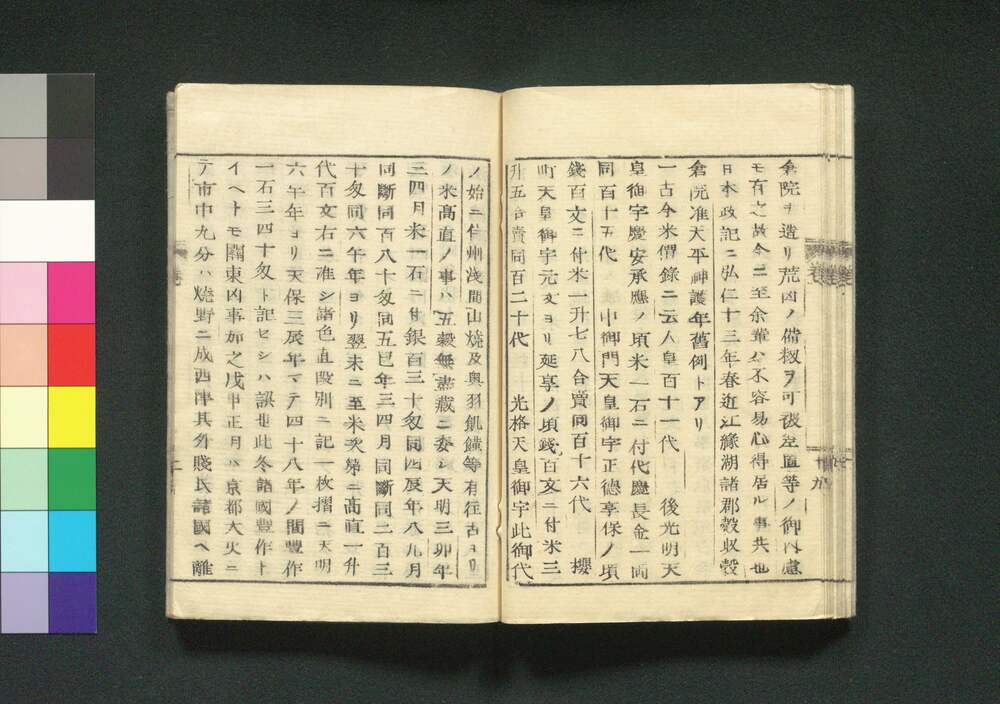 倉院ヲ遣リ荒凶ノ備樹ヲ可被差置等ノ御内慮
モ有之故今ニ至余輩ハ不容易心得居ル事共也
日本政記ニ弘仁十三年春近江縁湖諸郡穀収穀
倉院准天平神護年舊例トアリ
一古今米價錄ニ云人皇百十一代 後光明天
皇御宇慶安承應ノ頃米一石ニ付代慶長金一両
同百十五代 中御門天皇御宇正德享保ノ頃
錢百文ニ付米一升七八合賣同百十六代 櫻
町天皇御宇元文ヨリ延享ノ頃錢百文ニ付米三
升五合賣同百二十代 光格天皇御宇此御代
ノ始ニ信州淺間山燒及奥羽飢饉等有往古ヨリ
ノ米高直ノ事ハ五穀無盡藏ニ委シ天明三卯年
三四月米一石ニ付銀百三十匁同四辰年八九月
同斷同百八十匁同五巳年三四月同斷同二百三
十匁同六午年ヨリ翌未ニ至米次第ニ高直一升
代百文右ニ准シ諸色直段別ニ記一枚摺ニ天明
六午年ヨリ天保三辰年マテ四十八年ノ間豐作
一石三四十匁ト記セシハ誤也此冬諸國豐作ト
イヘトモ關東凶事加之戊申正月ハ京都大火ニ
テ市中九分ハ燒野ニ成西陣其外賤民諸國ヘ離